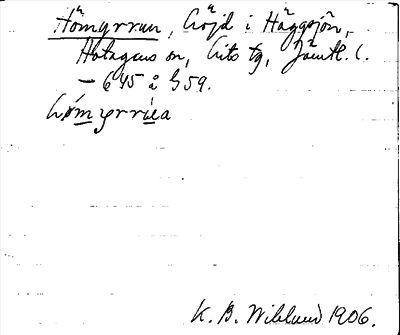 Hömyrrun, Höjd i Häggsjön,
Hotagens sn, Lits tg, Jämtl. l.
– 645 å G 59.
hömyrruͤa
K. B. Wiklund 1906.